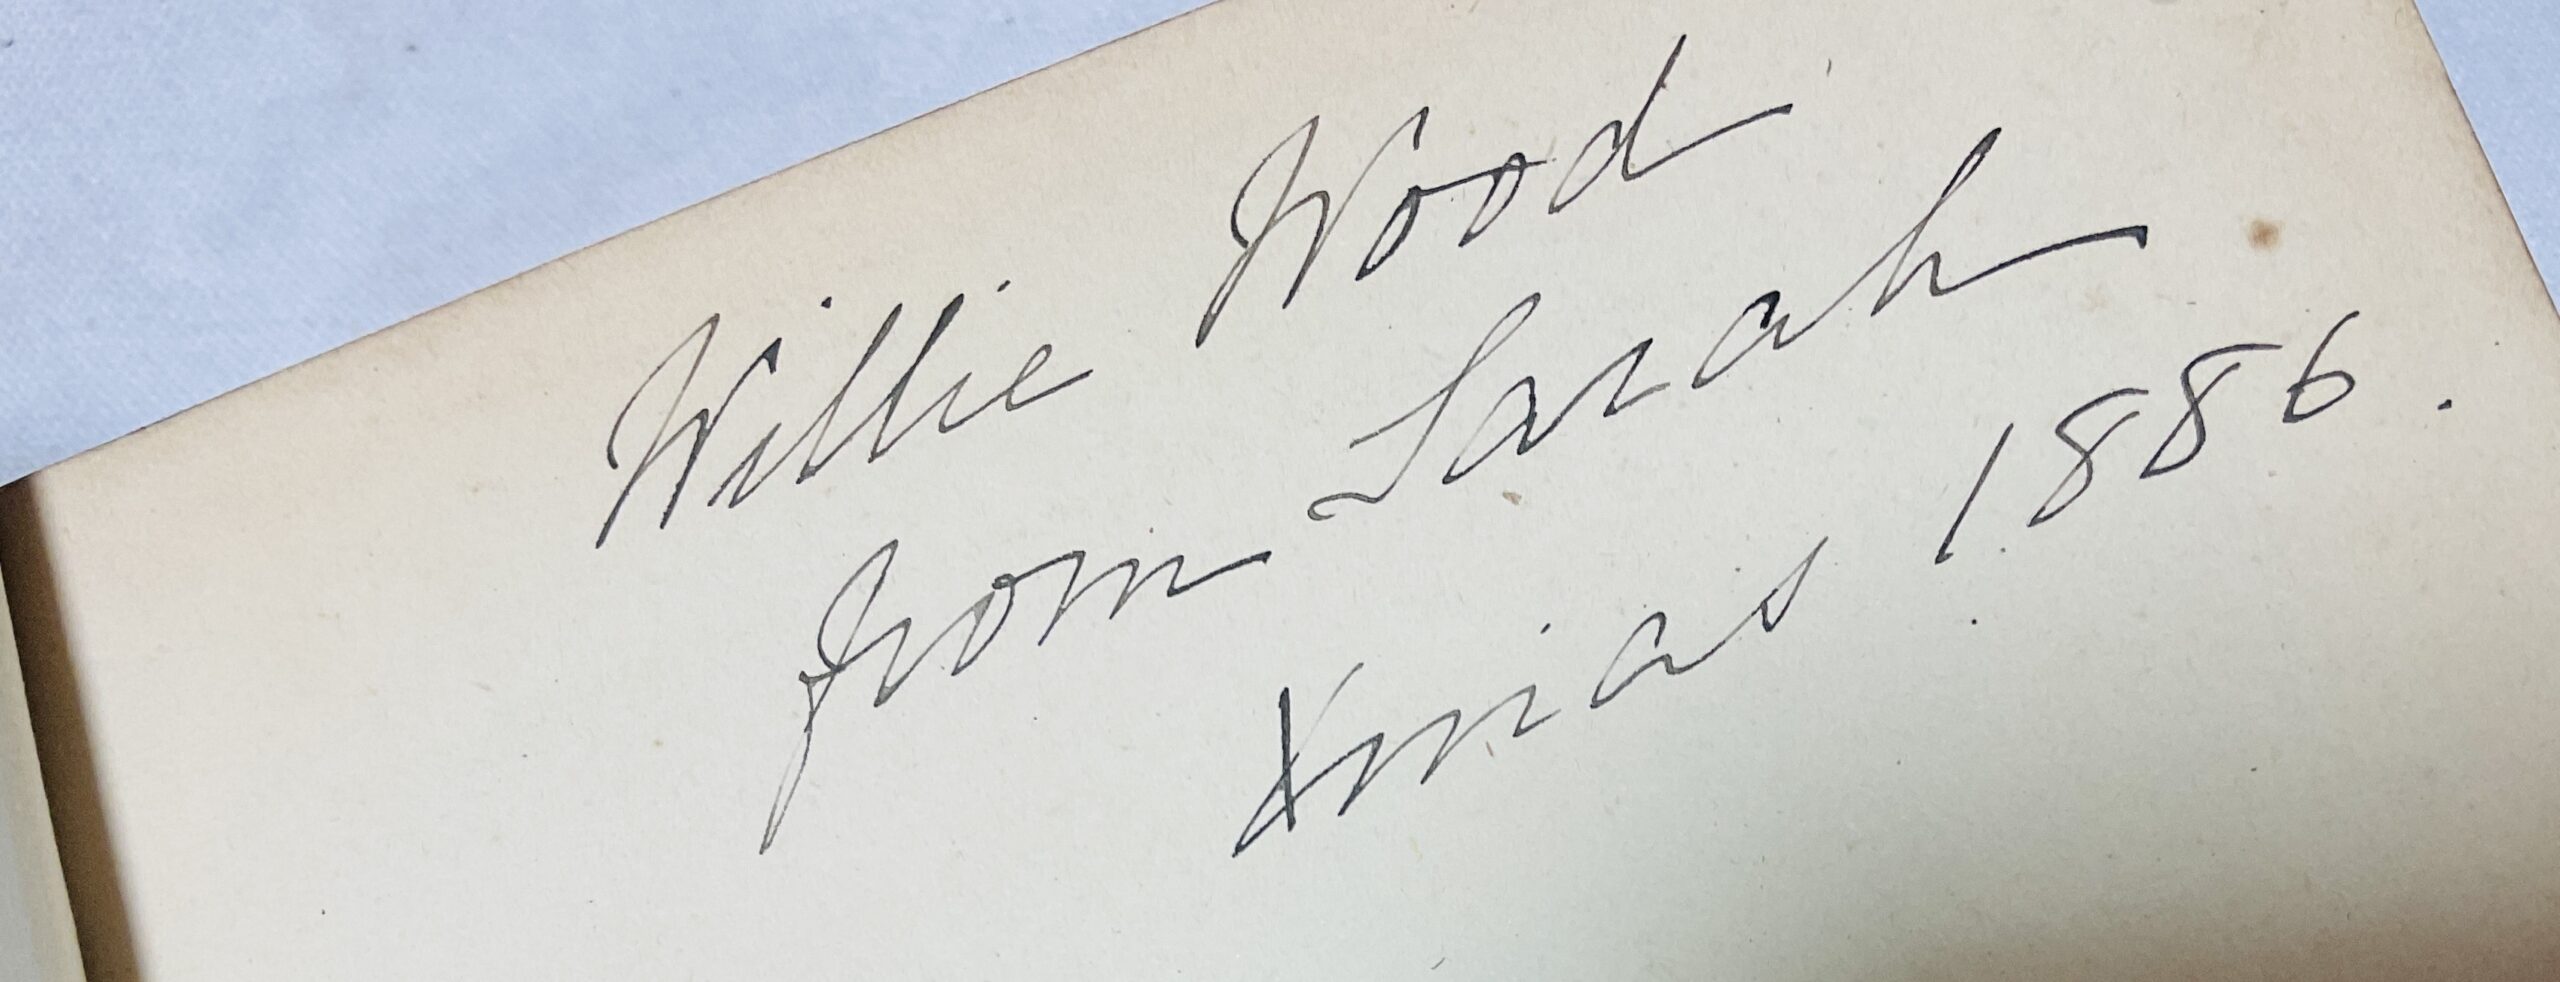 Willie Wood
from Sarah
Xmas 1886.